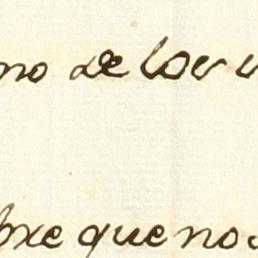 no de los
bre que no